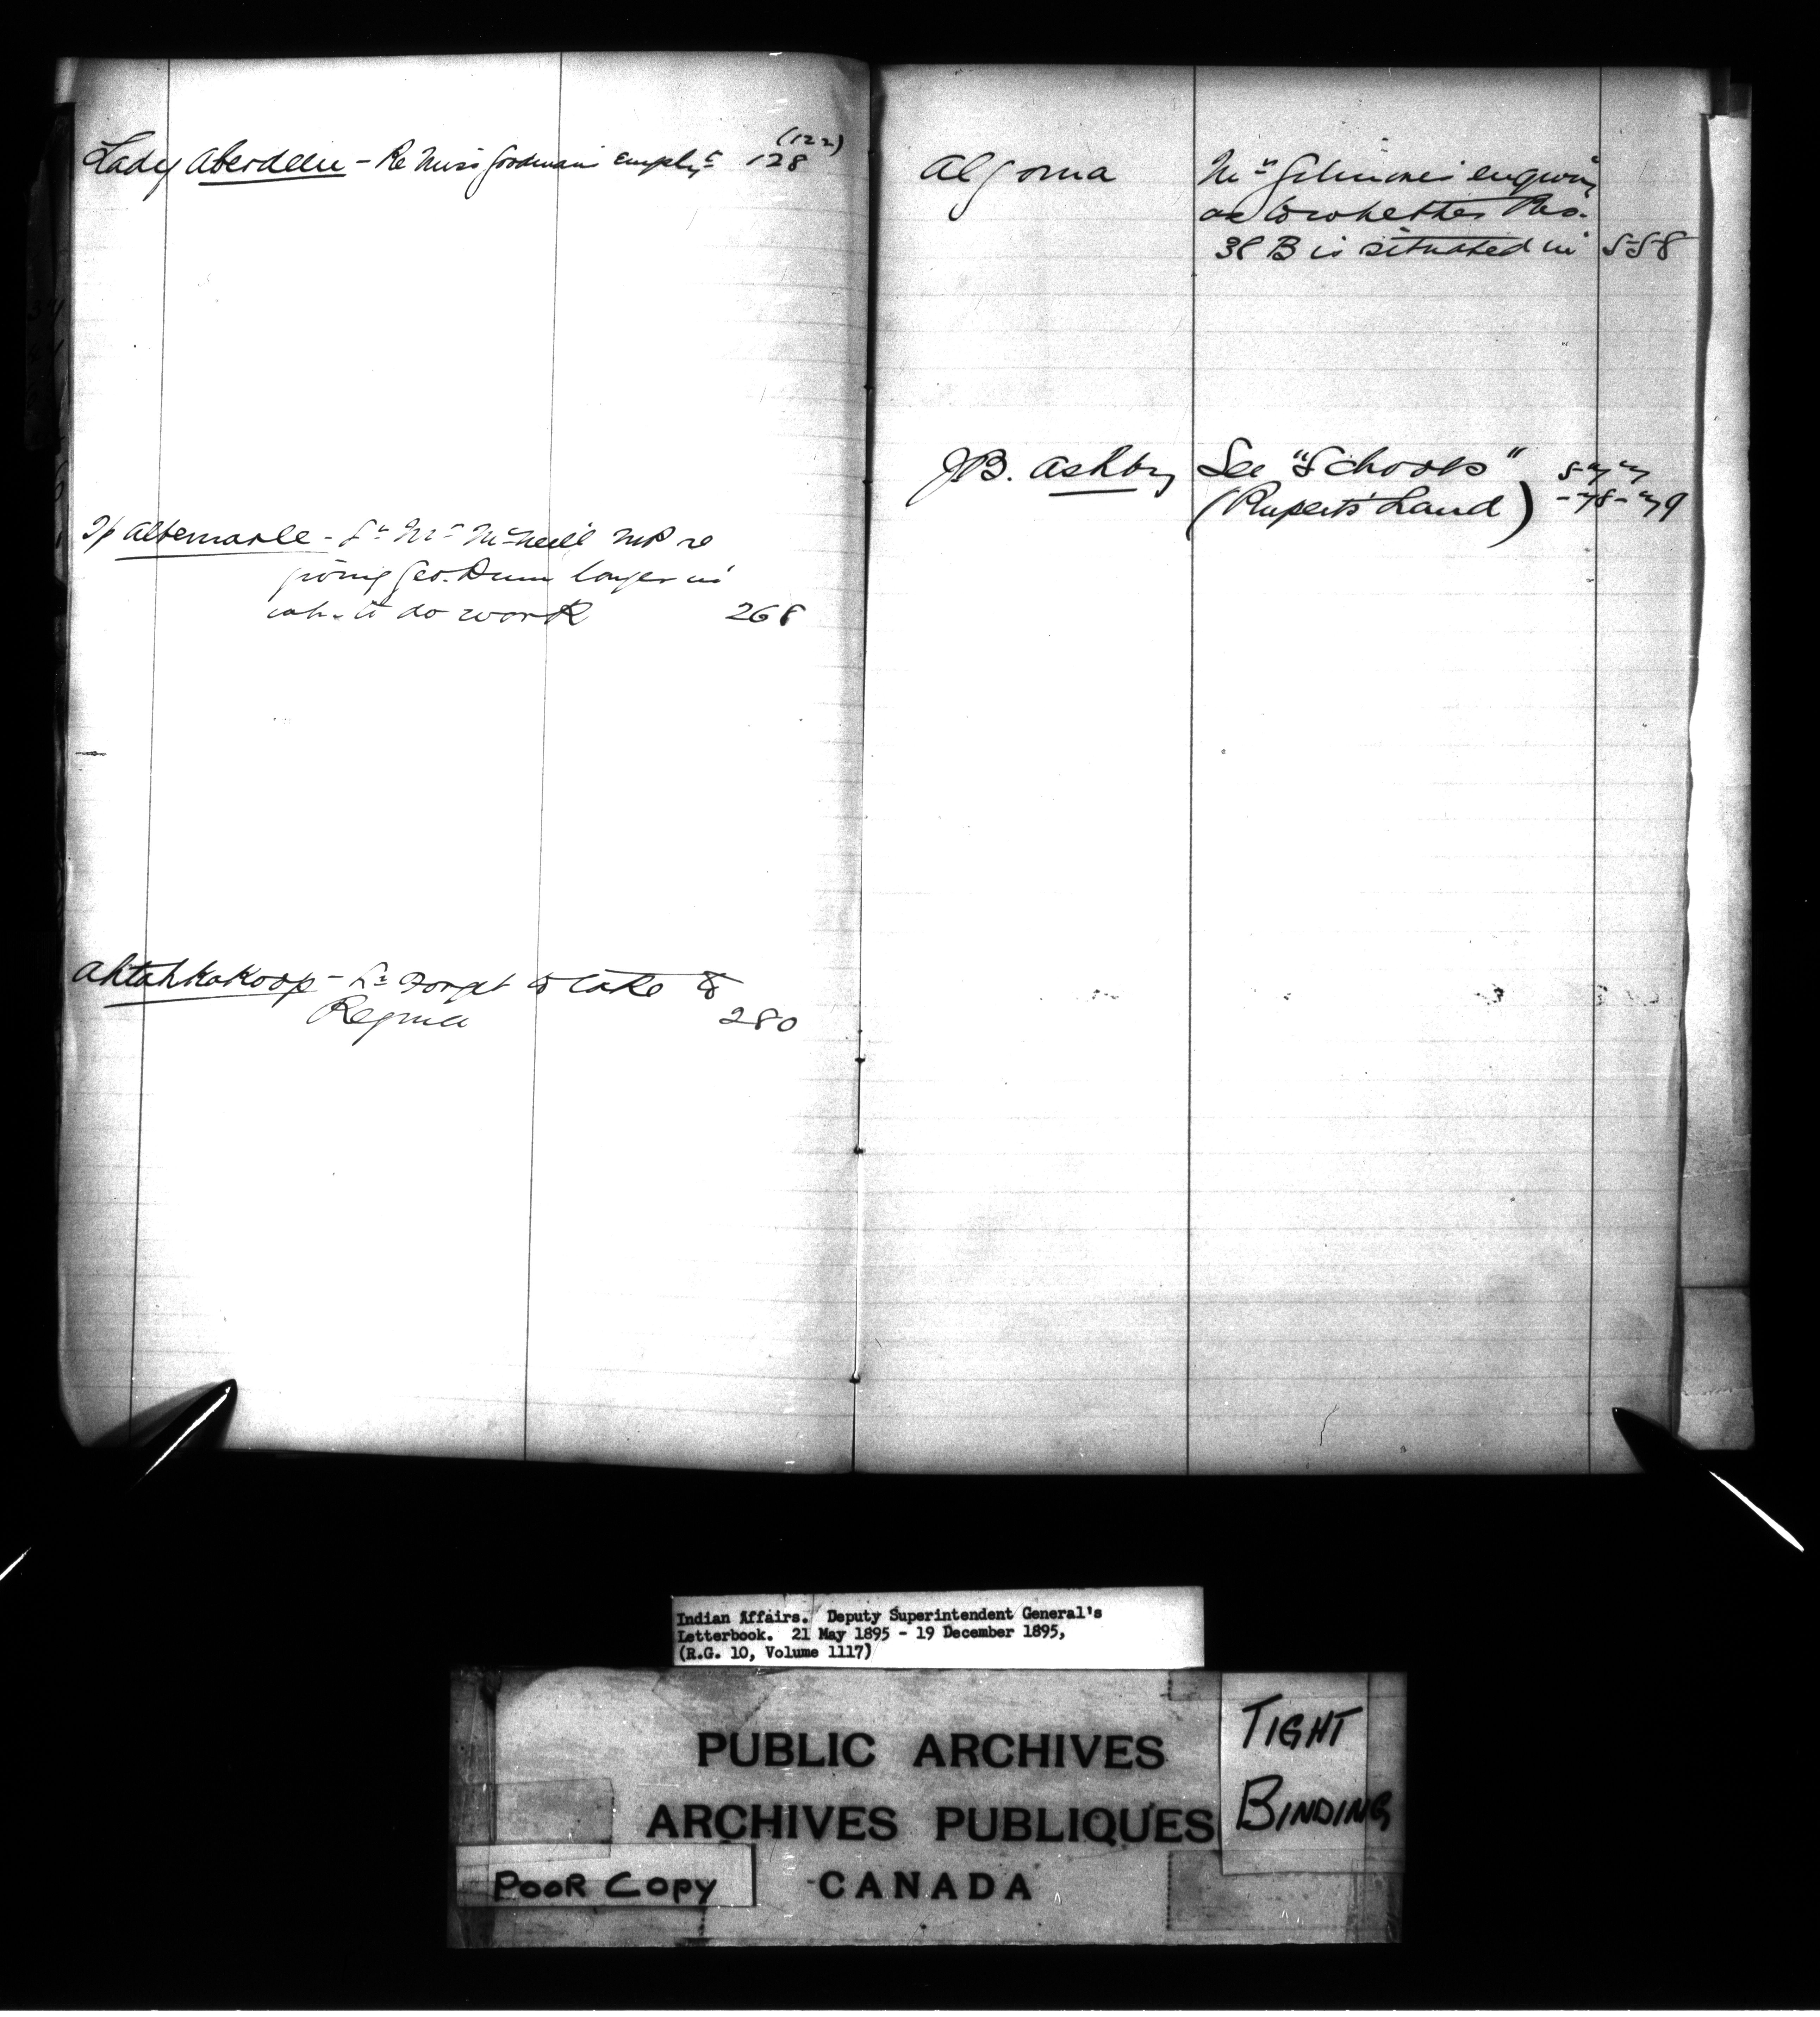 Lady Aberdeen - Re Miss Goodman's emplyt (122) 128
Tp Albemarle - Lr Mr McNeill MP re
giving Geo. Dunn longer in
wh. to do work 268
Ahtahkakoop - Lr Forget to take to
Regina 280
Algoma Mr Gilmore's enquiry
as to whether Res.
38 B is situated in 558
J.B. Ashby See "Schools" 577
(Rupert's Land) - 78 - 79
Indian Affairs. Deputy Superintendent General's
Letterbook. 21 May 1895 - 19 December 1895,
(R.G. 10, Volume 1117)
PUBLIC ARCHIVES
ARCHIVES PUBLIQUES
CANADA
TIGHT
BINDING
POOR COPY